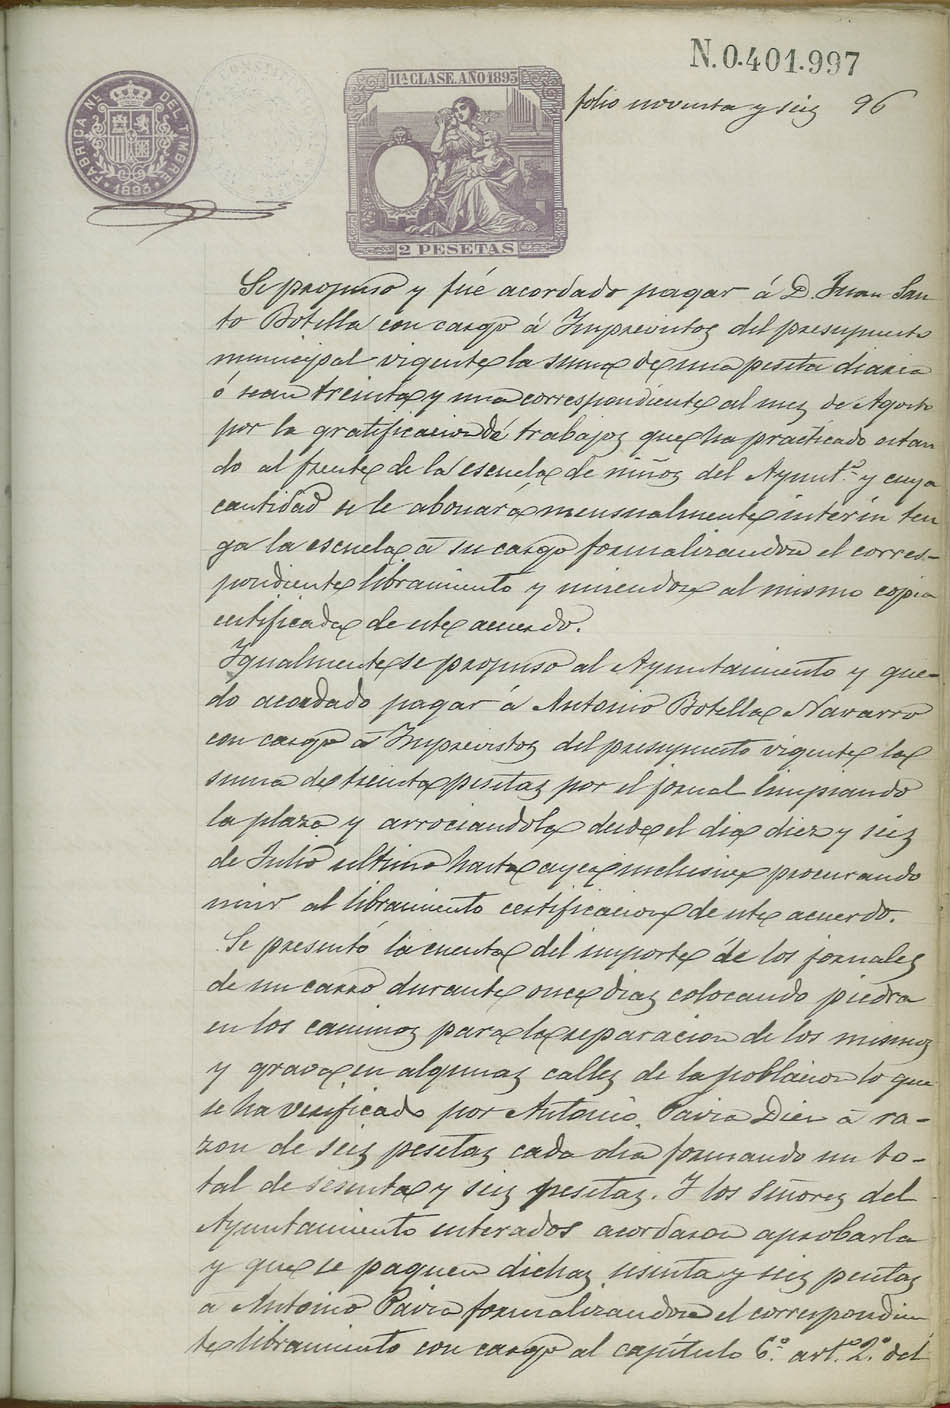 N.0.401.997
11ª CLASE. AÑO 1893
FABRICA NL DEL TIMBRE
1893
2 PESETAS
folio noventa y seis 96
Se propuso y fué acordado pagar á D. Juan San
to Botella con cargo á Imprevistos del presupuesto
municipal vigente la suma de una peseta diaria
ó sean treinta y una correspondiente al mes de Agosto
por la gratificacion de trabajos que ha practicado estan
do al frente de la escuela de niños del Ayuntº. y cuya
cantidad se le abonará mensualmente interin ten
ga la escuela á su cargo formalizandose el corres-
pondiente libramiento y uniendose al mismo copia
certificada de este acuerdo.
Igualmente se propuso al Ayuntamiento y que-
do acordado pagar á Antonio Botella Navarro
con cargo á Imprevistos del presupuesto vigente la
suma de treinta pesetas por el jornal limpiando
la plaza y arrociandola desde el dia diez y seis
de Julio ultimo hasta ayer inclusive procurando
unir al libramiento certificacion de este acuerdo.
Se presentó la cuenta del importe de los jornales
de un carro durante once dias colocando piedra
en los caminos para la reparacion de los mismos
y grava en algunas calles de la poblacion lo que
se ha verificado por Antonio Pavia Dien á ra-
zon de seis pesetas cada dia formando un to-
tal de sesenta y seis pesetas. Y los Señores del
Ayuntamiento enterados acordaron aprobarla
y que se paguen dichas sesenta y seis pesetas
á Antonio Pavia formalizandose el correspondien
te libramiento con cargo al capítulo 6º. artº. 2º. del